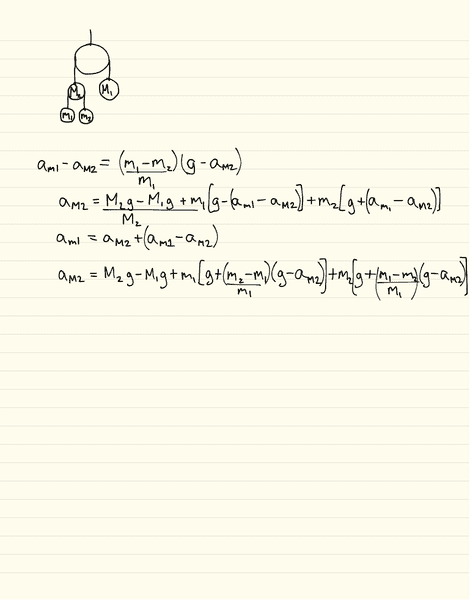 M₂ M₁
m₁ m₂
a_m1 - a_M2 = (m₁-m₂)/m₁ (g - a_M2)
a_M2 = M₂g - M₁g + m₁[g-(a_m1 - a_M2)] + m₂[g+(a_m1 - a_M2)] / M₂
a_m1 = a_M2 + (a_m1 - a_m2)
a_M2 = M₂g - M₁g + m₁[g+(m₂-m₁)/m₁ (g-a_M2)] + m₂[g+(m₁-m₂)/m₁ (g-a_M2)]